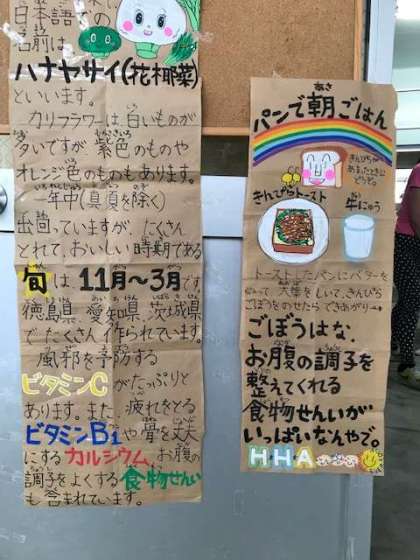 日本語での
名前は
ハナヤサイ(花椰菜)
といいます。
カリフラワーは、白いものが
多いですが紫色のものや
オレンジ色のものもあります。
一年中(真夏を除く)
出回っていますが、たくさん
とれて、おいしい時期である
旬は、11月～3月です。
徳島県 愛知県 茨城県
でたくさん作られています。
風邪を予防する
ビタミンCがたっぷりと
あります。また、疲れをとる
ビタミンB1や骨を丈夫
にするカルシウム、お腹の
調子をよくする食物せんい
も含まれています。
パンで朝ごはん
きんぴらが
あまったときに
どうぞ。
きんぴらトースト
牛にゅう
トーストしたパンにバターを
ぬって、大葉をしいて、きんぴら
ごぼうをのせたらできあがり～。
ごぼうはな、
お腹の調子を
整えてくれる
食物せんいが
いっぱいなんやで。
HHA